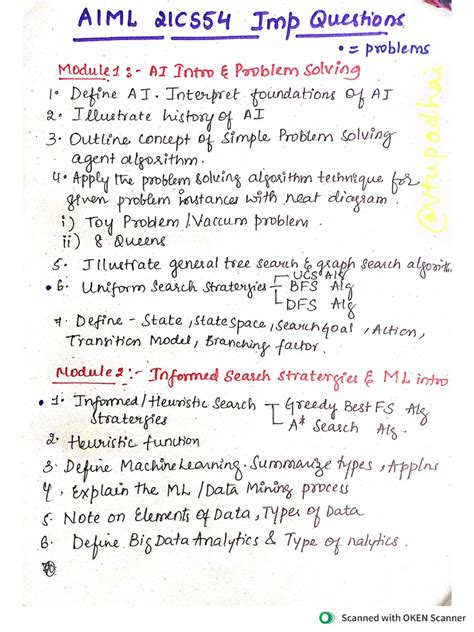 AIML 21CS54 Imp Questions
• = problems
Module 1 :- AI Intro & Problem Solving
1. Define AI. Interpret foundations of AI
2. Illustrate history of AI
3. Outline concept of Simple Problem Solving
agent algorithm.
4. Apply the problem solving algorithm technique for
given problem instances with neat diagram.
i) Toy Problem / Vaccum problem.
ii) 8 Queens
5. Illustrate general tree search & graph search algorithm
• 6. Uniform Search Stratergies UCS Alg
BFS Alg
DFS Alg
7. Define - State, State space, Search Goal, Action,
Transition Model, Branching factor.
Module 2 :- Informed Search Stratergies & ML intro
• 1. Informed / Heuristic Search Greedy Best FS Alg
Stratergies A* Search Alg.
2. Heuristic function
3. Define Machine Learning. Summarize types, Applns
4. Explain the ML / Data Mining process
5. Note on Elements of Data, Types of Data
6. Define Big Data Analytics & Type of nalytics.
@vtupadhai
Scanned with OKEN Scanner